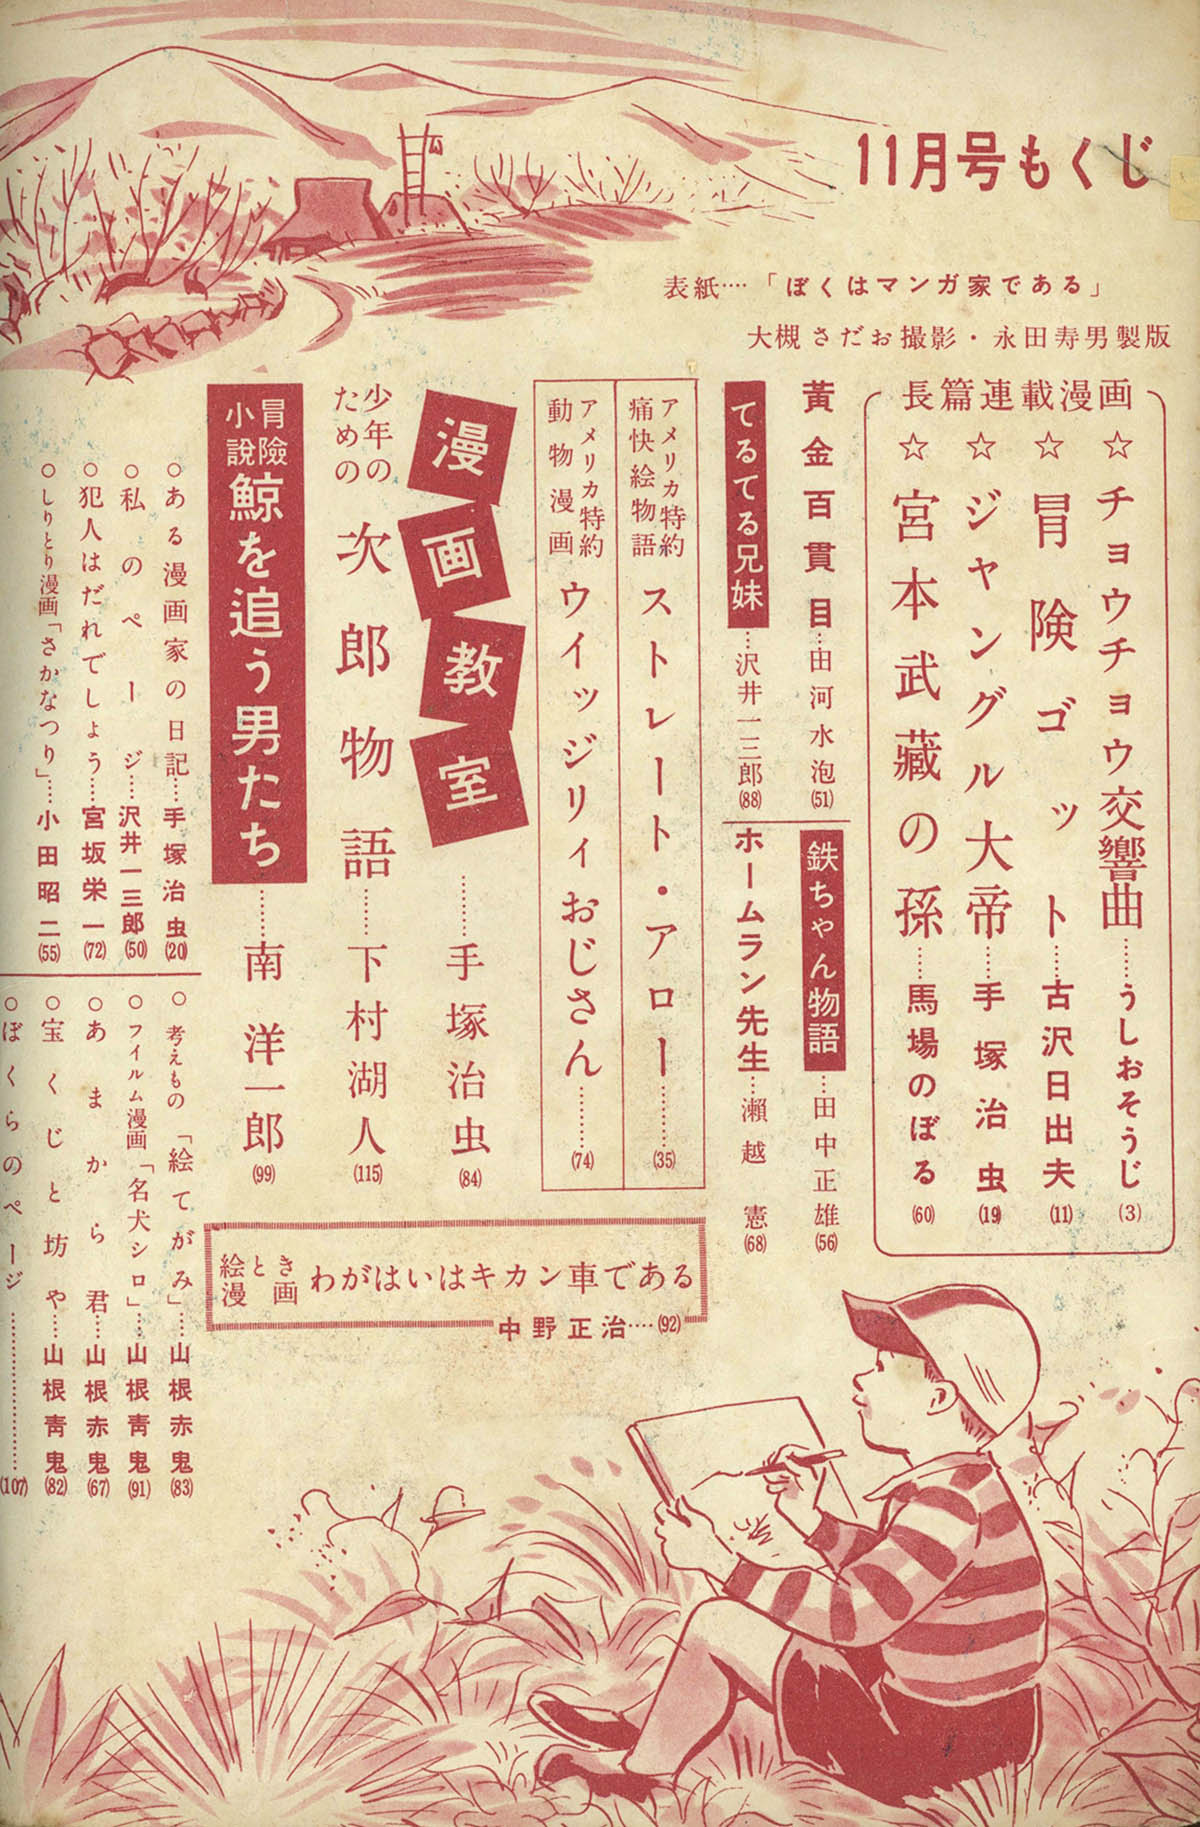 11月号もくじ
表紙‥‥「ぼくはマンガ家である」
大槻さだお撮影・永田寿男製版
長篇連載漫画
☆チョウチョウ交響曲……うしおそうじ(3)
☆冒険ゴット……古沢日出夫(11)
☆ジャングル大帝……手塚治虫(19)
☆宮本武蔵の孫……馬場のぼる(60)
黃金百貫目……田河水泡(51)
鉄ちゃん物語……田中正雄(56)
てるてる兄妹……沢井一三郎(88)
ホームラン先生……瀬越憲(68)
アメリカ特約
痛快絵物語
ストレート・アロー………(35)
アメリカ特約
動物漫画
ウイッジリィおじさん………(74)
漫画教室………手塚治虫(84)
少年の
ための
次郎物語……下村湖人(115)
冒險
小說
鯨を追う男たち………南洋一郎(99)
絵とき
漫画
わがはいはキカン車である
中野正治‥‥(92)
○ある漫画家の日記……手塚治虫(20)
○私のページ……沢井一三郎(50)
○犯人はだれでしょう……宮坂栄一(72)
○しりとり漫画「さかなつり」……小田昭二(55)
○考えもの「絵てがみ」……山根赤鬼(83)
○フイルム漫画「名犬シロ」……山根靑鬼(91)
○あまから君……山根赤鬼(67)
○宝くじと坊や……山根靑鬼(82)
○ぼくらのページ………………(107)